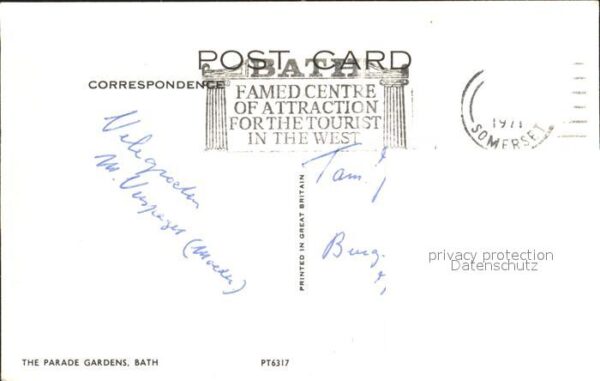 POST CARD
CORRESPONDENCE
BATH
FAMED CENTRE
OF ATTRACTION
FOR THE TOURIST
IN THE WEST
1971
SOMERSET
Vele groeten
M. (Moeder)
Fam.
Burg.
PRINTED IN GREAT BRITAIN
privacy protection
Datenschutz
THE PARADE GARDENS, BATH
PT6317